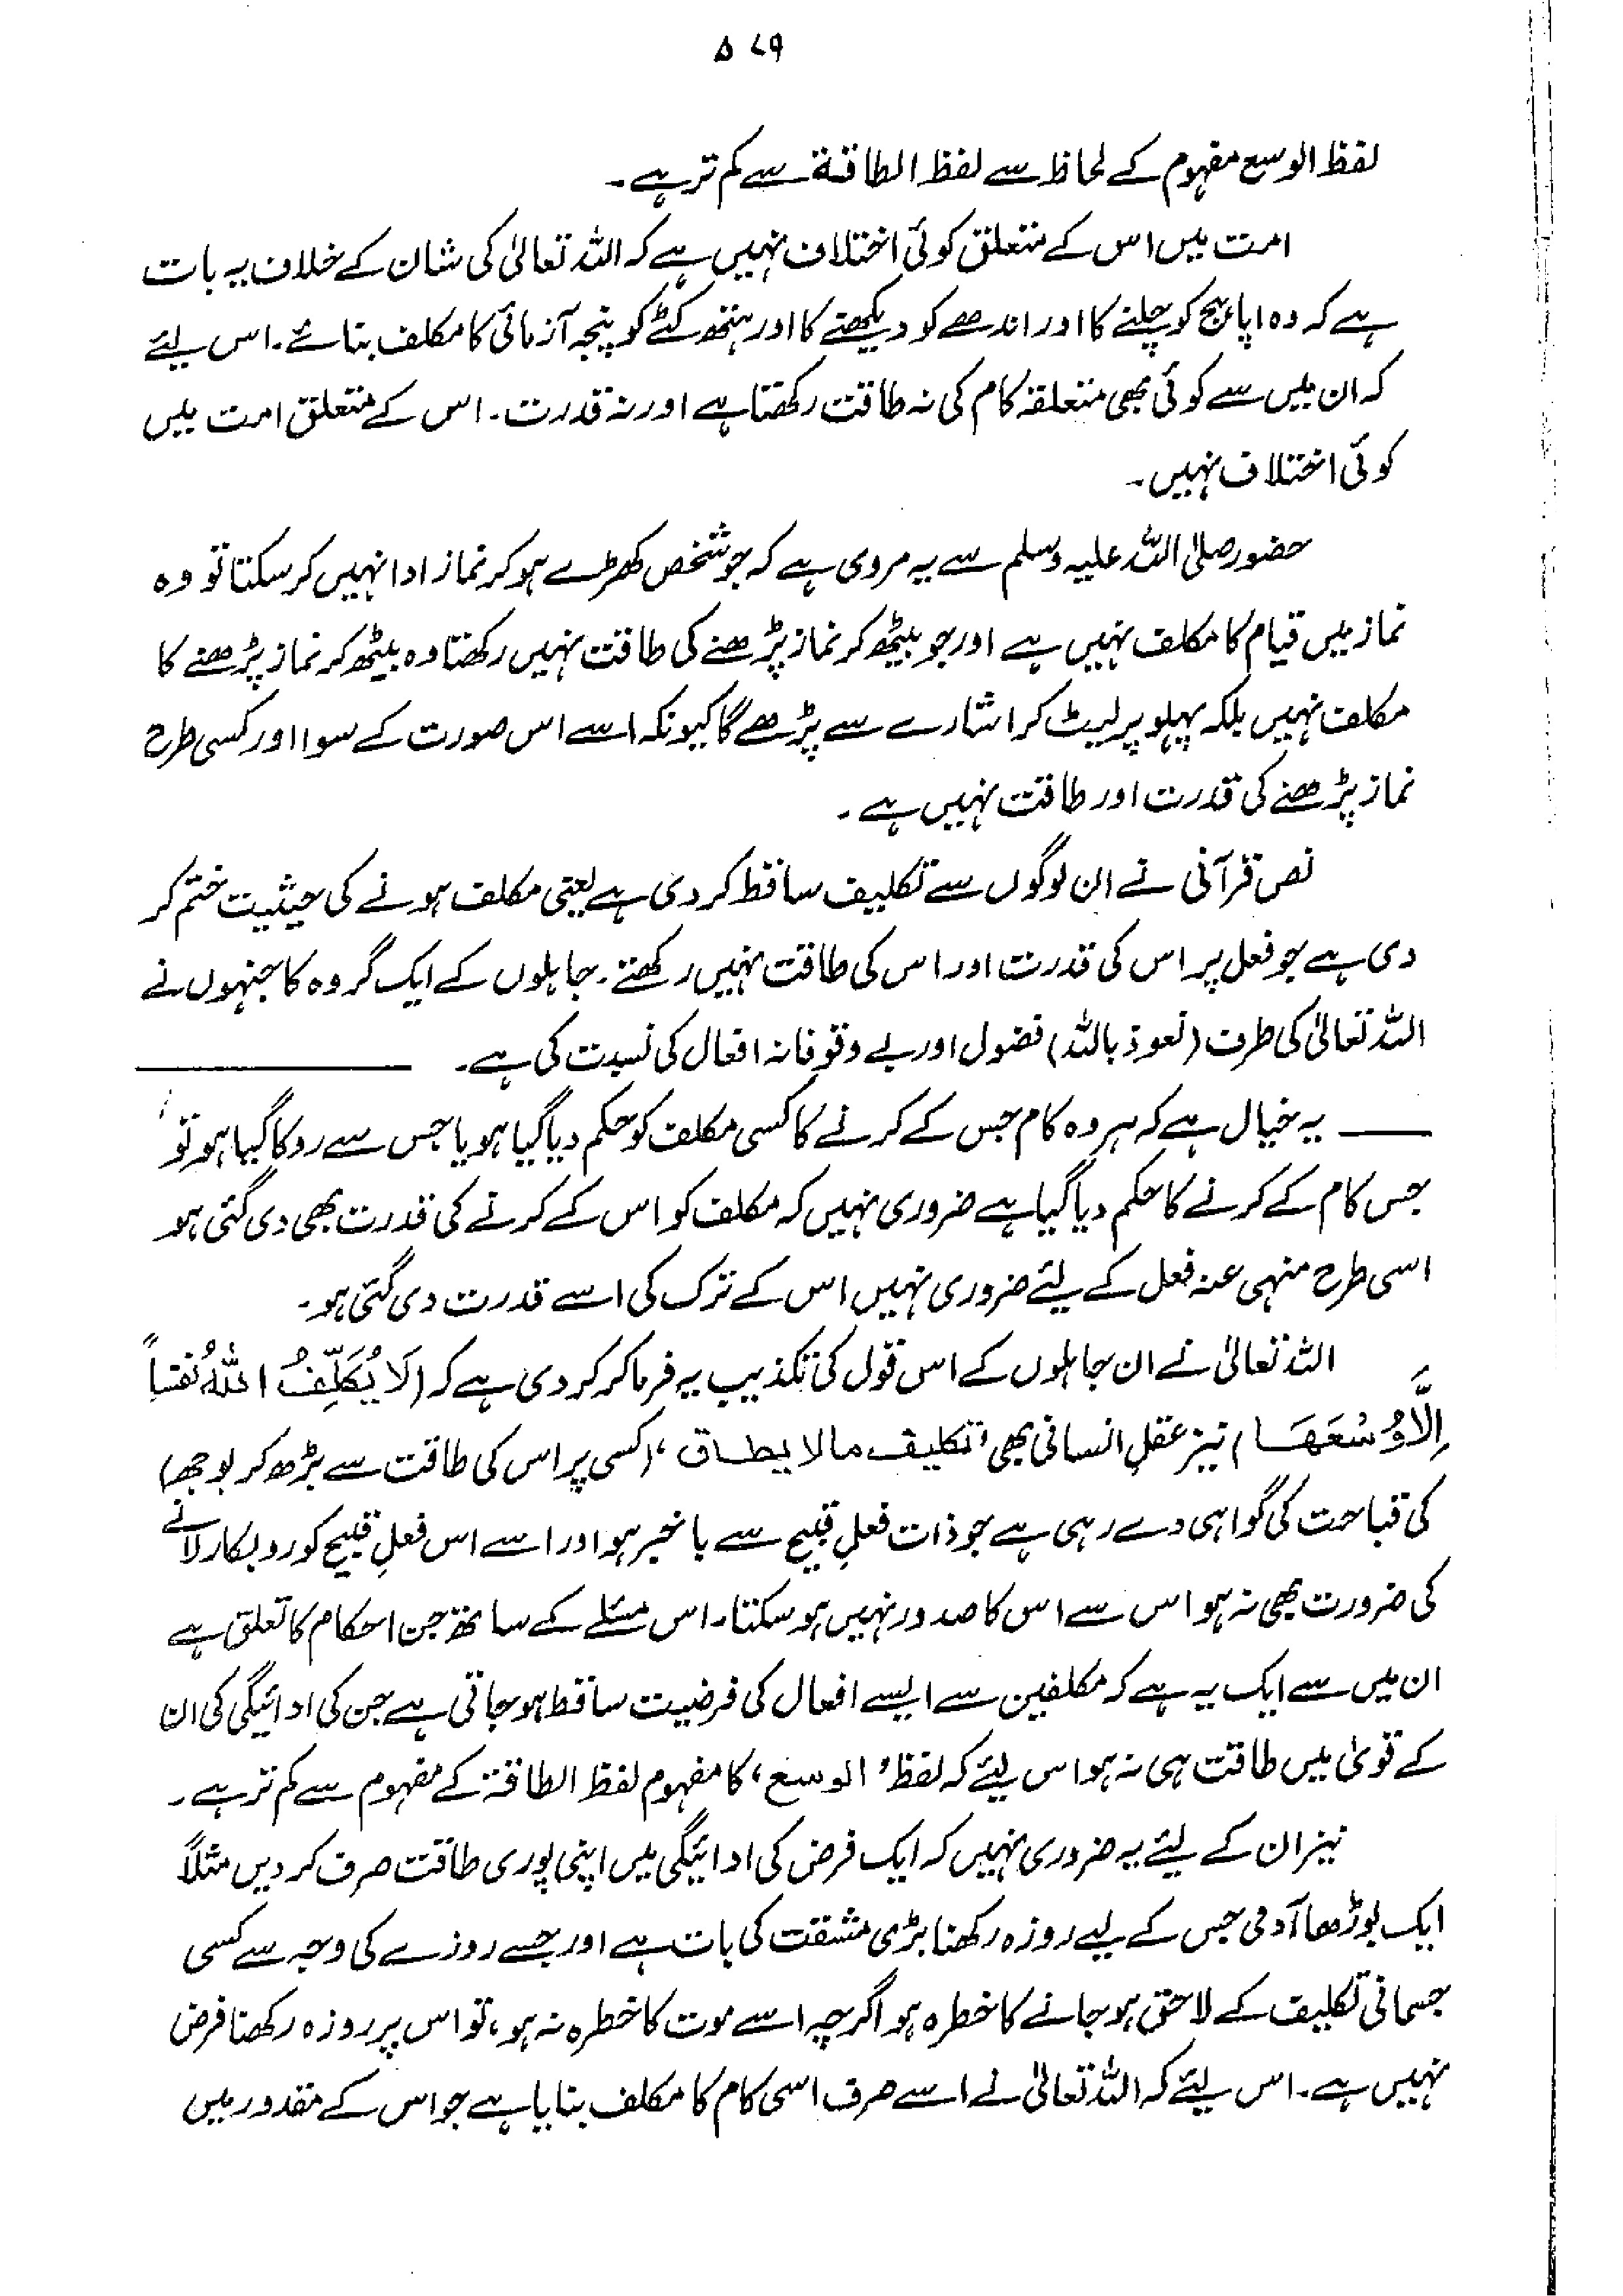 ۵۷۹
لفظ الوسع مفہوم کے لحاظ سے لفظ الطاقۃ سے کم تر ہے۔
امت میں اس کے متعلق کوئی اختلاف نہیں ہے کہ اللہ تعالیٰ کی شان کے خلاف یہ بات
ہے کہ وہ اپاہج کو چلنے کا اور اندھے کو دیکھنے کا اور ہتھ کٹے کو پنجہ آزمائی کا مکلف بنائے۔ اس لیے
کہ ان میں سے کوئی بھی متعلقہ کام کی نہ طاقت رکھتا ہے اور نہ قدرت۔ اس کے متعلق امت میں
کوئی اختلاف نہیں۔
حضور صلی اللہ علیہ وسلم سے یہ مروی ہے کہ جو شخص کھڑے ہو کر نماز ادا نہیں کر سکتا تو وہ
نماز میں قیام کا مکلف نہیں ہے اور جو بیٹھ کر نماز پڑھنے کی طاقت نہیں رکھتا وہ بیٹھ کر نماز پڑھنے کا
مکلف نہیں بلکہ پہلو پر لیٹ کر اشارے سے پڑھے گا کیونکہ اسے اس صورت کے سوا اور کسی طرح
نماز پڑھنے کی قدرت اور طاقت نہیں ہے۔
نص قرآنی نے ان لوگوں سے تکلیف ساقط کر دی ہے یعنی مکلف ہونے کی حیثیت ختم کر
دی ہے جو فعل پر اس کی قدرت اور اس کی طاقت نہیں رکھتے۔ جاہلوں کے ایک گروہ کا جنہوں نے
اللہ تعالیٰ کی طرف (نعوذ باللہ) فضول اور بے وقوفانہ افعال کی نسبت کی ہے۔ ـــــــــــ
ـــــ یہ خیال ہے کہ ہر وہ کام جس کے کرنے کا کسی مکلف کو حکم دیا گیا ہو یا جس سے روکا گیا ہو تو
جس کام کے کرنے کا حکم دیا گیا ہے ضروری نہیں کہ مکلف کو اس کے کرنے کی قدرت بھی دی گئی ہو
اسی طرح منہی عنہ فعل کے لیئے ضروری نہیں اس کے ترک کی اسے قدرت دی گئی ہو۔
اللہ تعالیٰ نے ان جاہلوں کے اس قول کی تکذیب یہ فرما کر کر دی ہے کہ (لَا یُکَلِّفُ اللّٰہُ نَفْسًا
اِلَّا وُسْعَھَا) نیز عقلِ انسانی بھی 'تکلیف مالا یطاق' (کسی پر اس کی طاقت سے بڑھ کر بوجھ)
کی قباحت کی گواہی دے رہی ہے جو ذات فعلِ قبیح سے باخبر ہو اور اسے اس فعلِ قبیح کو روبکار لانے
کی ضرورت بھی نہ ہو اس سے اس کا صدور نہیں ہو سکتا۔ اس مسئلے کے ساتھ جن احکام کا تعلق ہے
ان میں سے ایک یہ ہے کہ مکلفین سے ایسے افعال کی فرضیت ساقط ہو جاتی ہے جن کی ادائیگی کی ان
کے قویٰ میں طاقت ہی نہ ہو اس لیئے کہ لفظ 'الوسع' کا مفہوم لفظ الطاقۃ کے مفہوم سے کم تر ہے۔
نیز ان کے لیئے یہ ضروری نہیں کہ ایک فرض کی ادائیگی میں اپنی پوری طاقت صرف کر دیں مثلاً
ایک بوڑھا آدمی جس کے لیے روزہ رکھنا بڑی مشقت کی بات ہے اور جسے روزے کی وجہ سے کسی
جسمانی تکلیف کے لاحق ہو جانے کا خطرہ ہو اگرچہ اسے موت کا خطرہ نہ ہو، تو اس پر روزہ رکھنا فرض
نہیں ہے۔ اس لیئے کہ اللہ تعالیٰ نے اسے صرف اسی کام کا مکلف بنایا ہے جو اس کے مقدور میں